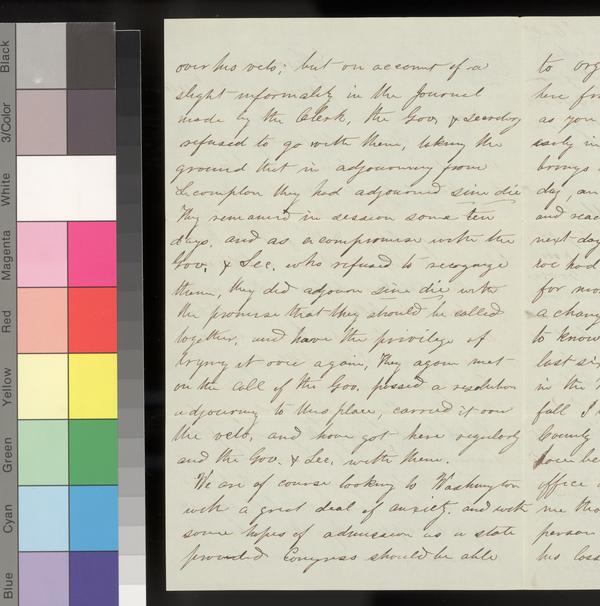 Black
3/Color
White
Magenta
Red
Yellow
Green
Cyan
Blue
over his veto; but on account of a
slight informality in the Journal
made by the Clerk, the Gov. & Secretary
refused to go with them, taking the
ground that in adjourning from
Lecompton they had adjourned sine die
They remained in session some ten
days, and as a compromise with the
Gov. & Sec. who refused to recognize
them, they did adjourn sine die with
the promise that they should be called
together, and have the privilege of
trying it over again, They again met
on the Call of the Gov. passed a resolution
adjourning to this place, carried it over
the veto, and have got here regularly
and the Gov. & Sec. with them.
We are of course looking to Washington
with a great deal of anxiety, and with
some hopes of admission as a state
provided Congress should be able
to org
here fro
as you
early in
brings
day, an
and reac
next day
had
for mo
a chang
to know
last si
in the
fall I
County
office
me tho
person
his loss